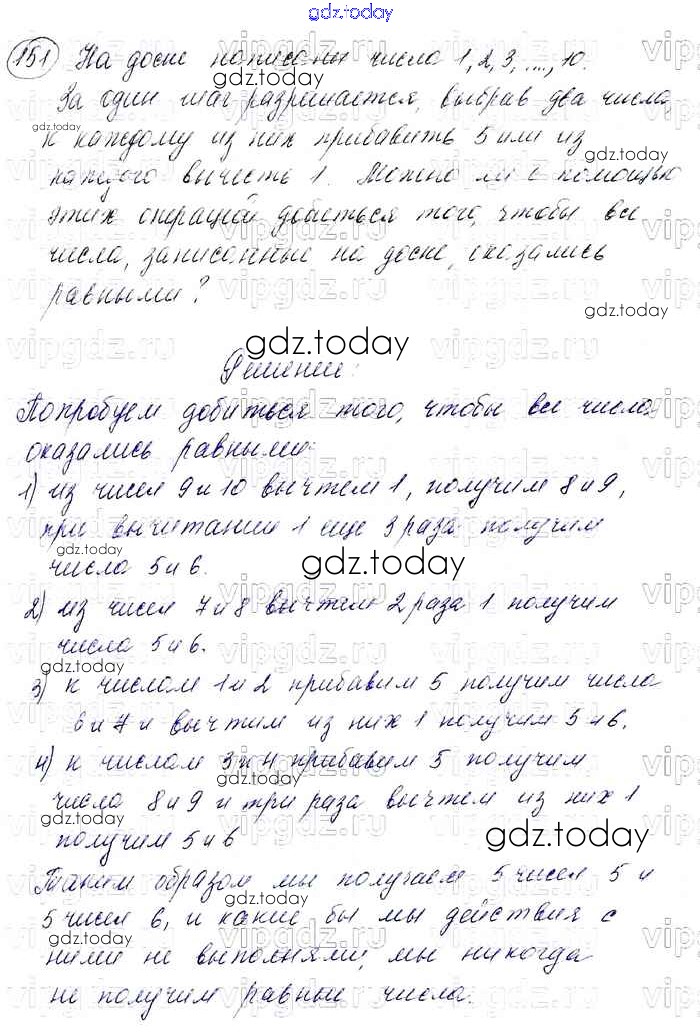 gdz.today
151 На доске написаны числа 1, 2, 3, ..., 10.
gdz.today
За один шаг разрешается, выбрав два числа,
gdz.today
к каждому из них прибавить 5 или из
gdz.today
каждого вычесть 1. Можно ли с помощью
этих операций добиться того, чтобы все
gdz.today
числа, записанные на доске, оказались
равными?
gdz.today
gdz.today
Решение:
Попробуем добиться того, чтобы все числа
оказались равными:
1) из чисел 9 и 10 вычтем 1, получим 8 и 9,
при вычитании 1 еще 3 раза получим
gdz.today
gdz.today
числа 5 и 6.
2) из чисел 7 и 8 вычтем 2 раза 1 получим
gdz.today
числа 5 и 6.
gdz.today
3) к числам 1 и 2 прибавим 5 получим числа
6 и 7 и вычтем из них 1 получим 5 и 6.
4) к числам 3 и 4 прибавим 5 получим
gdz.today
числа 8 и 9 и три раза вычтем из них 1
gdz.today
получим 5 и 6
gdz.today
Таким образом мы получаем 5 чисел 5 и
5 чисел 6, и какие бы мы действия с
gdz.today
ними не выполняли, мы никогда
не получим равные числа.
gdz.today